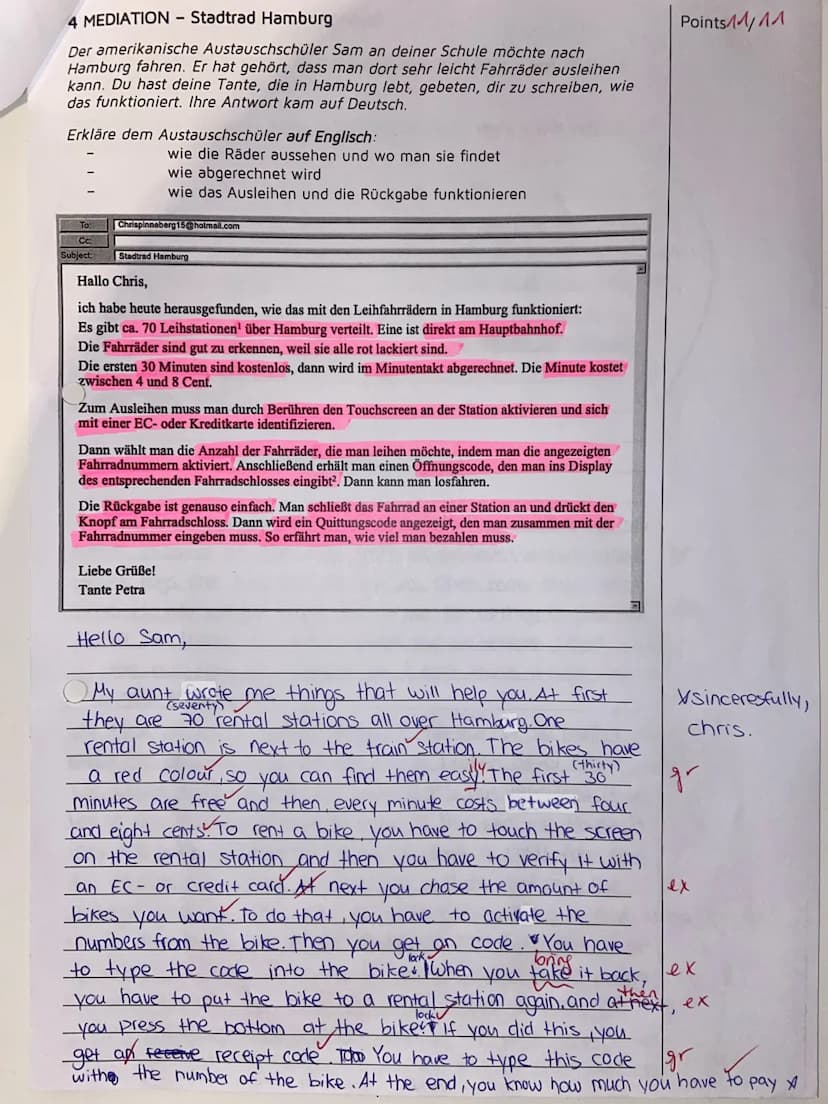 4 MEDIATION – Stadtrad Hamburg
Points 11/11
Der amerikanische Austauschschüler Sam an deiner Schule möchte nach
Hamburg fahren. Er hat gehört, dass man dort sehr leicht Fahrräder ausleihen
kann. Du hast deine Tante, die in Hamburg lebt, gebeten, dir zu schreiben, wie
das funktioniert. Ihre Antwort kam auf Deutsch.
Erkläre dem Austauschschüler auf Englisch:
– wie die Räder aussehen und wo man sie findet
– wie abgerechnet wird
– wie das Ausleihen und die Rückgabe funktionieren
To: Chrispinneberg15@hotmail.com
Cc:
Subject: Stadtrad Hamburg
Hallo Chris,
ich habe heute herausgefunden, wie das mit den Leihfahrrädern in Hamburg funktioniert:
Es gibt ca. 70 Leihstationen¹ über Hamburg verteilt. Eine ist direkt am Hauptbahnhof.
Die Fahrräder sind gut zu erkennen, weil sie alle rot lackiert sind.
Die ersten 30 Minuten sind kostenlos, dann wird im Minutentakt abgerechnet. Die Minute kostet
zwischen 4 und 8 Cent.
Zum Ausleihen muss man durch Berühren den Touchscreen an der Station aktivieren und sich
mit einer EC- oder Kreditkarte identifizieren.
Dann wählt man die Anzahl der Fahrräder, die man leihen möchte, indem man die angezeigten
Fahrradnummern aktiviert. Anschließend erhält man einen Öffnungscode, den man ins Display
des entsprechenden Fahrradschlosses eingibt². Dann kann man losfahren.
Die Rückgabe ist genauso einfach. Man schließt das Fahrrad an einer Station an und drückt den
Knopf am Fahrradschloss. Dann wird ein Quittungscode angezeigt, den man zusammen mit der
Fahrradnummer eingeben muss. So erfährt man, wie viel man bezahlen muss.
Liebe Grüße!
Tante Petra
Hello Sam,
My aunt wrote me things that will help you. At first
(seventy)
they are 70 rental stations all over Hamburg. One
rental station is next to the train station. The bikes have
a red colour, so you can find them easyly. The first 30 (thirty)
minutes are free and then, every minute costs between four
and eight cents. To rent a bike, you have to touch the screen
on the rental station and then you have to verify it with
an EC- or credit card. At next you chose the amount of
bikes you want. To do that, you have to activate the
numbers from the bike. Then you get an code. You have
to type the code into the bike lock. When you take bring it back,
you have to put the bike to a rental station again, and at next then,
you press the bottom at the bike lock. If you did this, you
get an receive receipt code. You have to type this code
with the number of the bike. At the end, you know how much you have to pay x
x sinceresfully,
chris.
gr
ex
ex
ex
gr